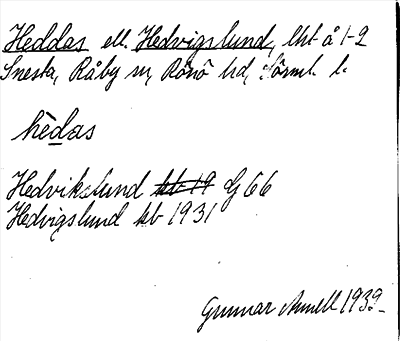 Heddas ell. Hedvigslund, lht å 1-2
Snesta, Råby sn, Rönö hd, Sörml. l.
hèdas
Hedvikslund kb 19 Gj 66
Hedvigslund kb 1931
Gunnar Annell 1939